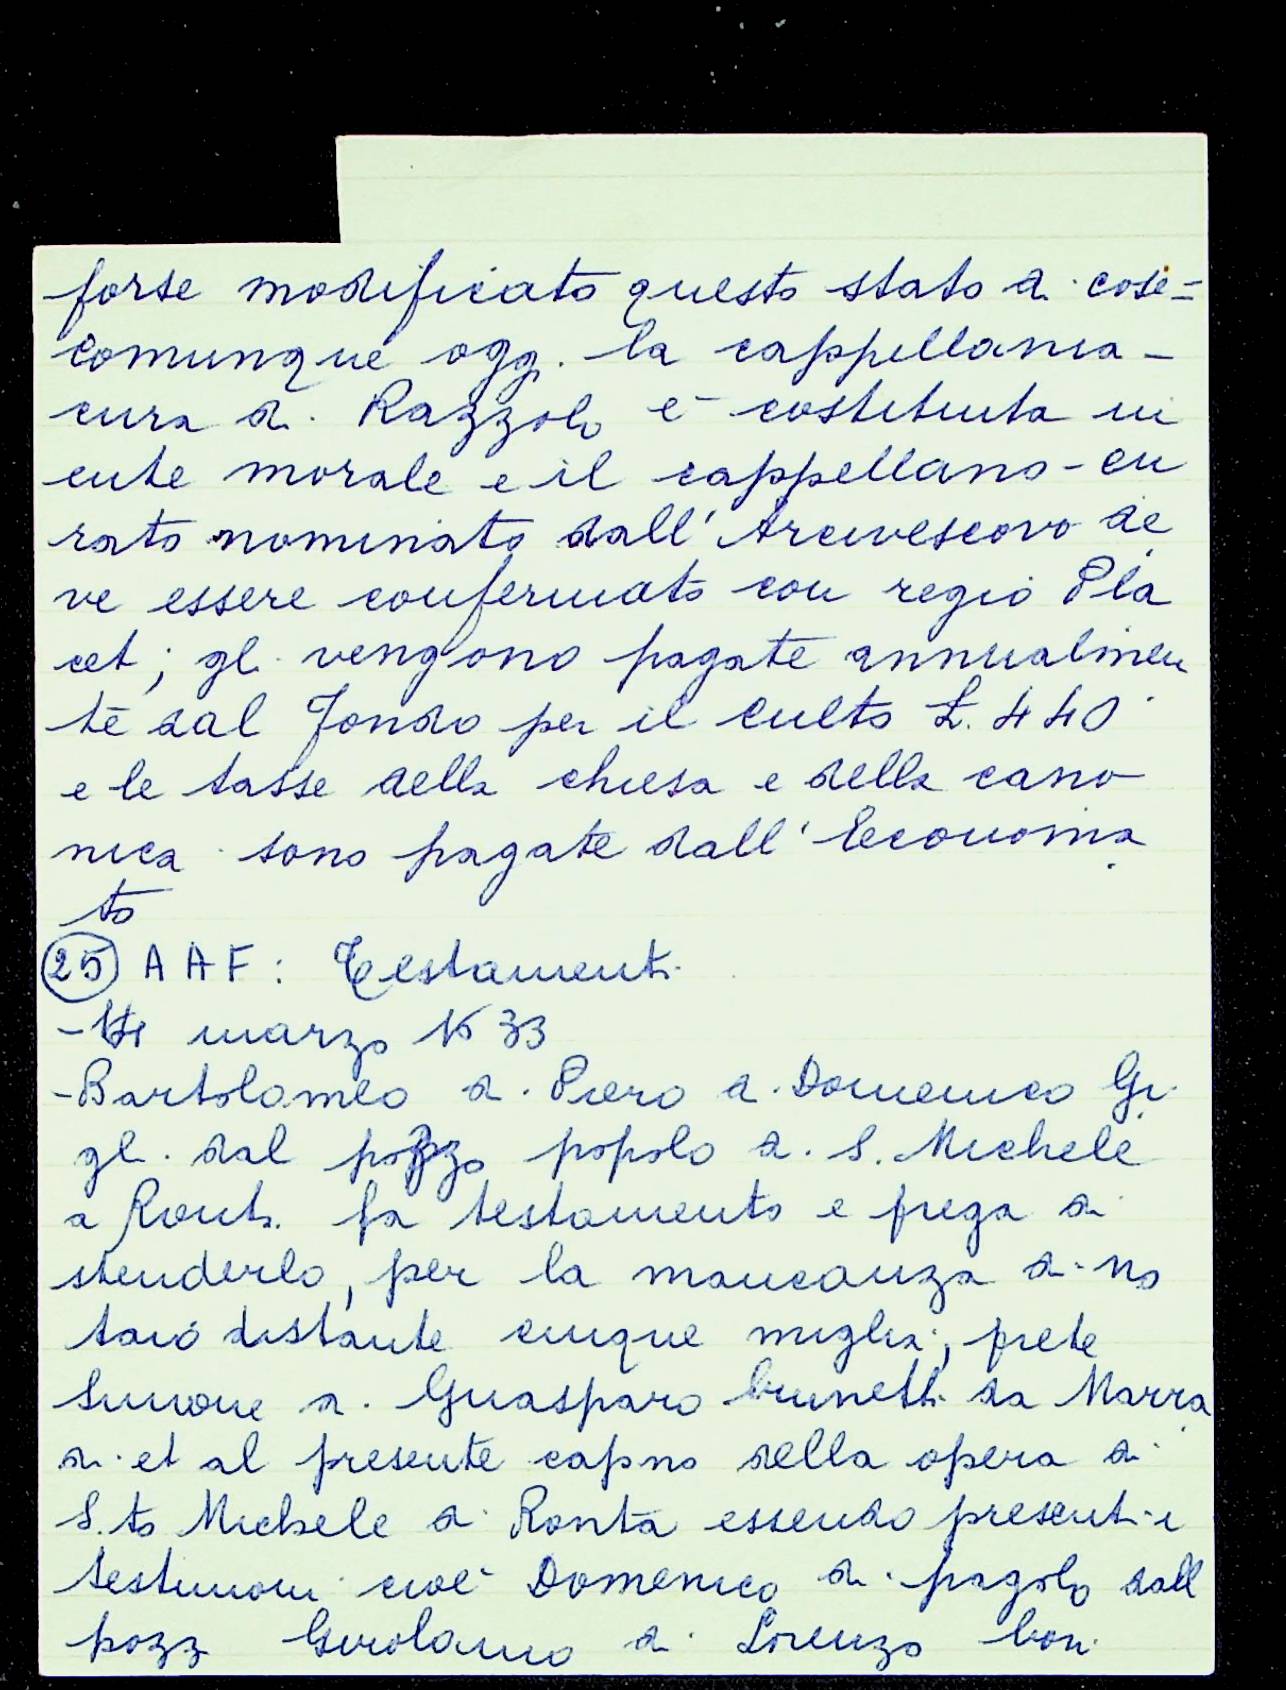 forse modificato questo stato di cose=
comunque oggi la cappellania-
cura di Razzolo è costituita in
ente morale e il cappellano-cu
rato nominato dall'Arcivescovo de
ve essere confermato con regio Pla
cet; gli vengono pagate annualmen
te dal Fondo per il Culto L. 440
e le tasse della chiesa e della cano
nica sono pagate dall'Economa
to
(25) AAF: Testamenti
- marzo 1633
-Bartolomeo di Piero di Domenico Gi
gli dal pozzo popolo di S. Michele
a Ronta fa testamento e prega di
stenderlo, per la mancanza di no
taio distante cinque miglia, prete
Simone di Guasparo brunetti da Marra
di et al presente capno della opera di
S.to Michele di Ronta essendo presenti i
testimoni cioè Domenico di pagolo dall
pozz Girolamo di Lorenzo bon